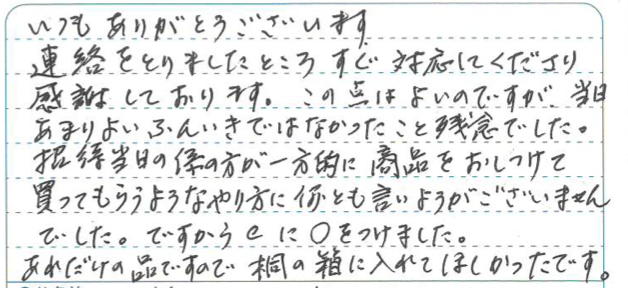 いつもありがとうございます
連絡をとりましたところすぐ対応してくださり
感謝しております。この点はよいのですが、当日
あまりよいふんいきではなかったこと残念でした。
招待当日の係の方が一方的に商品をおしつけて
買ってもらうようなやり方に何とも言いようがございません
でした。ですからeに○をつけました。
あれだけの品ですので桐の箱に入れてほしかったです。